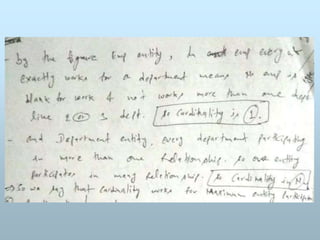 - By the figure Emp entity, In emp every is
exactly works for a department means no emp is
blank for work & not works more than one dept
like 2 or 3 dept. so cardinality is 1.
- and Department entity, every department participating
in more than one Relationship. so one entity
participates in many relationship. so cardinality is M
→ So we say that cardinality works for Maximum entity